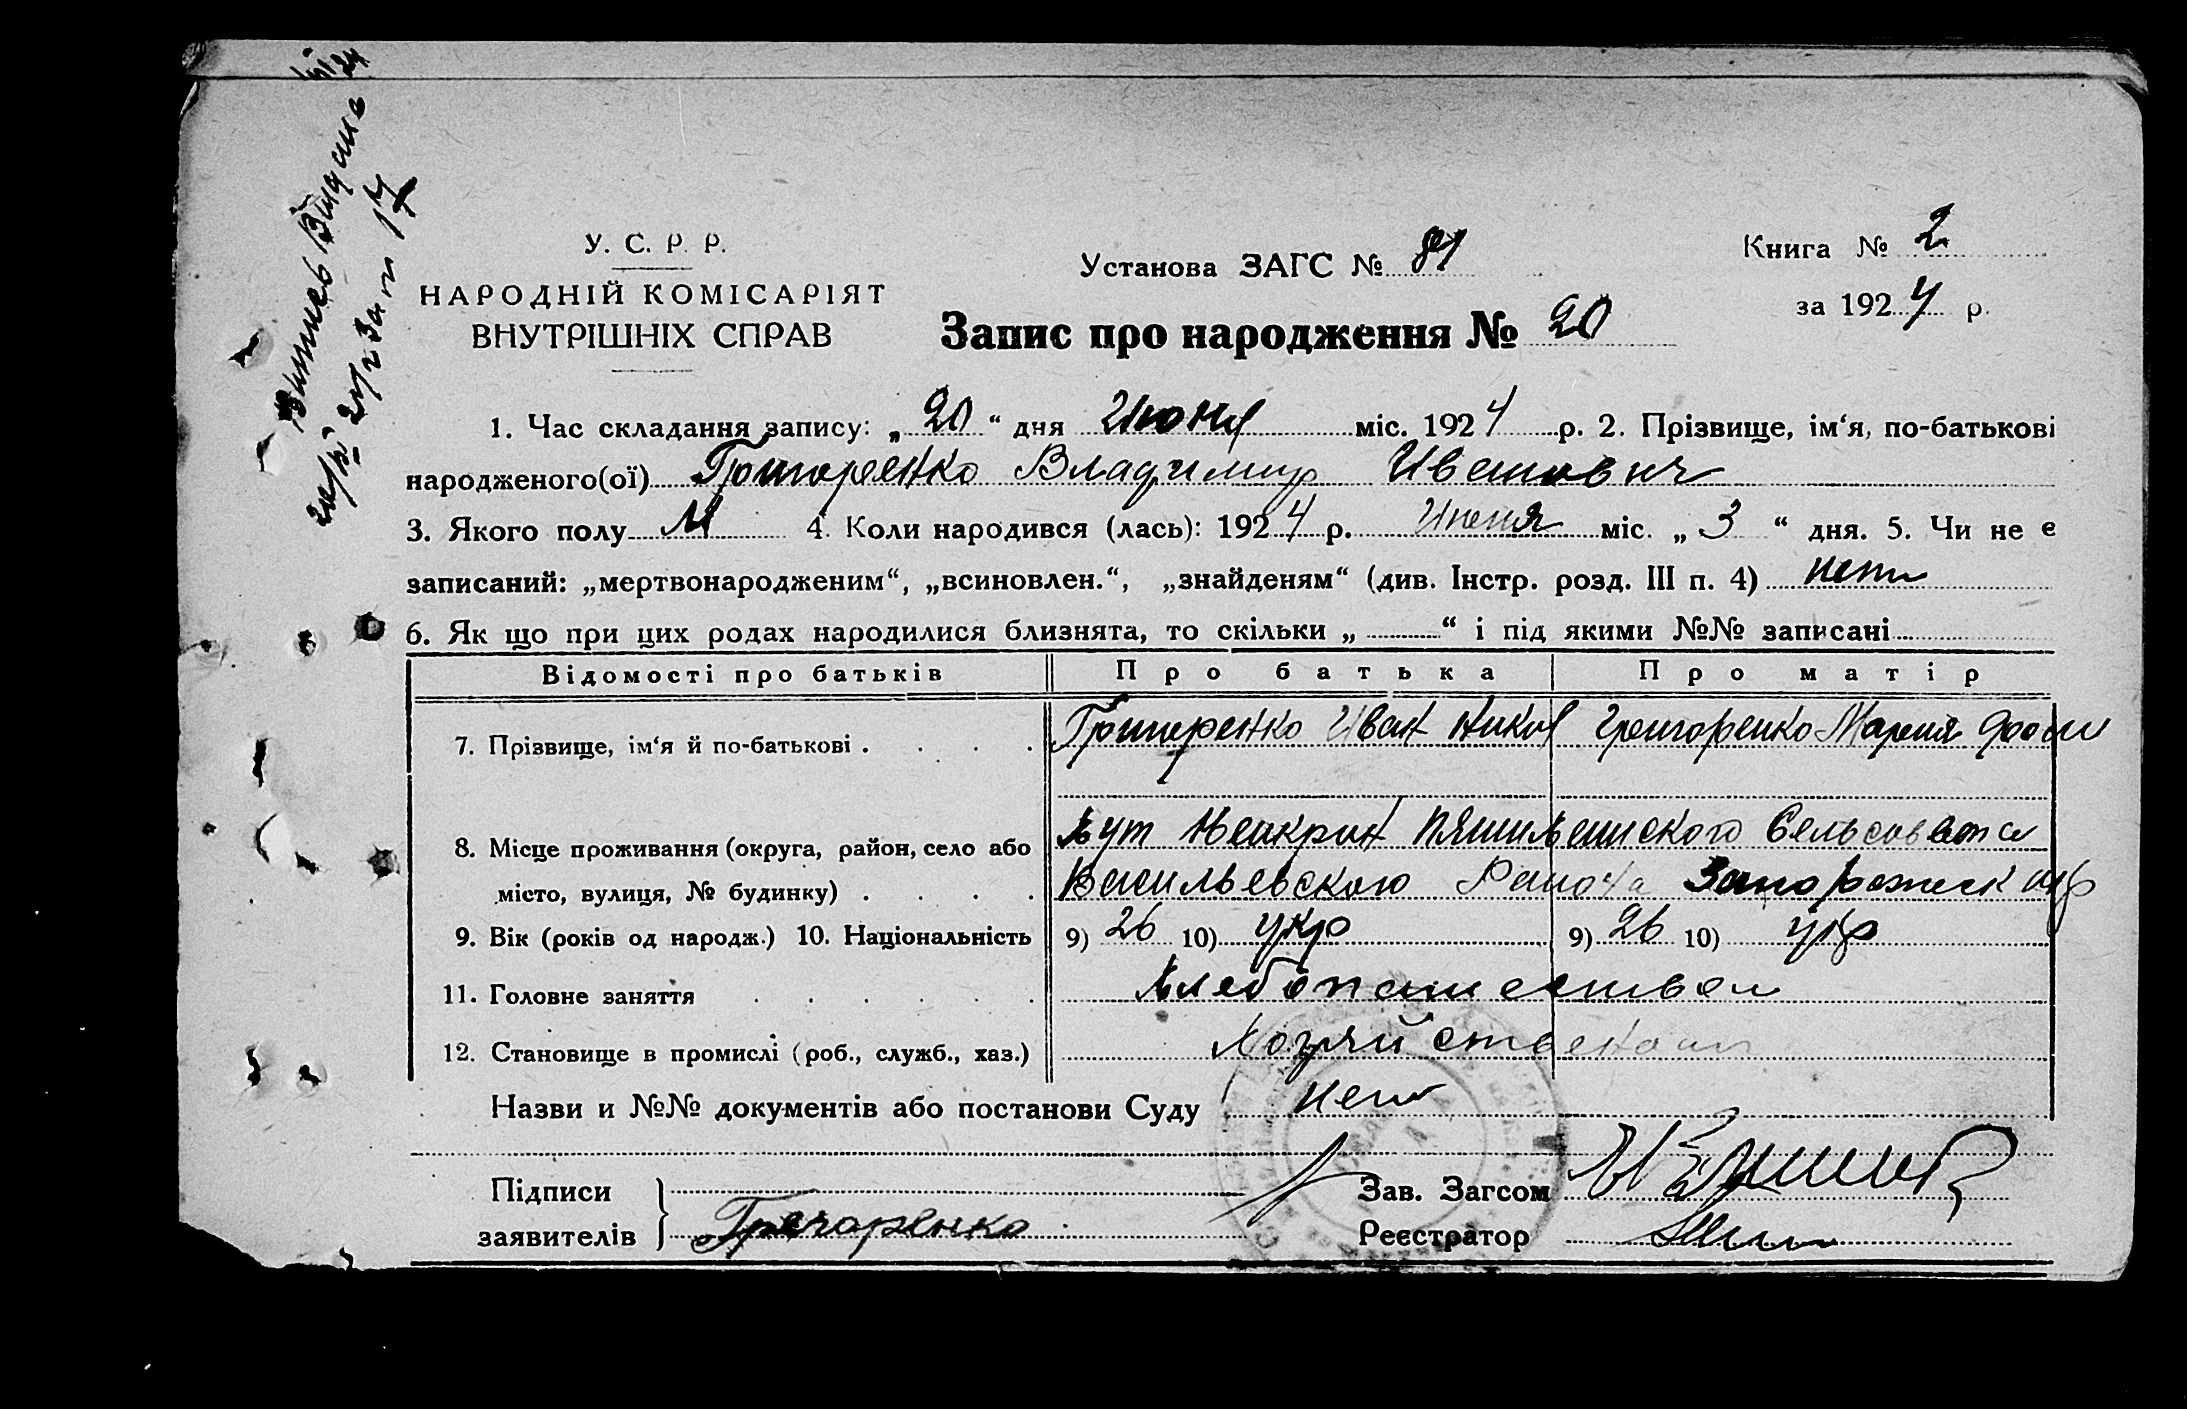 У. С. Р. Р.
НАРОДНІЙ КОМІСАРІЯТ
ВНУТРІШНІХ СПРАВ
Установа ЗАГС № 81
Книга № 2
за 1924 р.
Запис про народження № 20
1. Час складання запису: „20“ дня Июня міс. 1924 р. 2. Прізвище, ім‘я, по-батькові
народженого(ої) Григоренко Владимир Иванович
3. Якого полу М 4. Коли народився (лась): 1924 р. Июня міс. „3“ дня. 5. Чи не є
записаний: „мертвонародженим“, „всиновлен.“, „знайденям“ (див. Інстр. розд. III п. 4) нет
6. Як що при цих родах народилися близнята, то скільки „ “ і під якими №№ записані
Відомості про батьків Про батька Про матір
7. Прізвище, ім‘я й по-батькові Григоренко Иван Никол Григоренко Мария
8. Місце проживання (округа, район, село або Хут Сельсовета
місто, вулиця, № будинку) Васильевского Района Запорожск окр
9. Вік (років од народж.) 10. Національність 9) 26 10) укр 9) 26 10) укр
11. Головне заняття Хлебопашеством
12. Становище в промислі (роб., служб., хаз.)
Назви и №№ документів або постанови Суду нет
Підписи Зав. Загсом
заявителів Григоренко Реєстратор